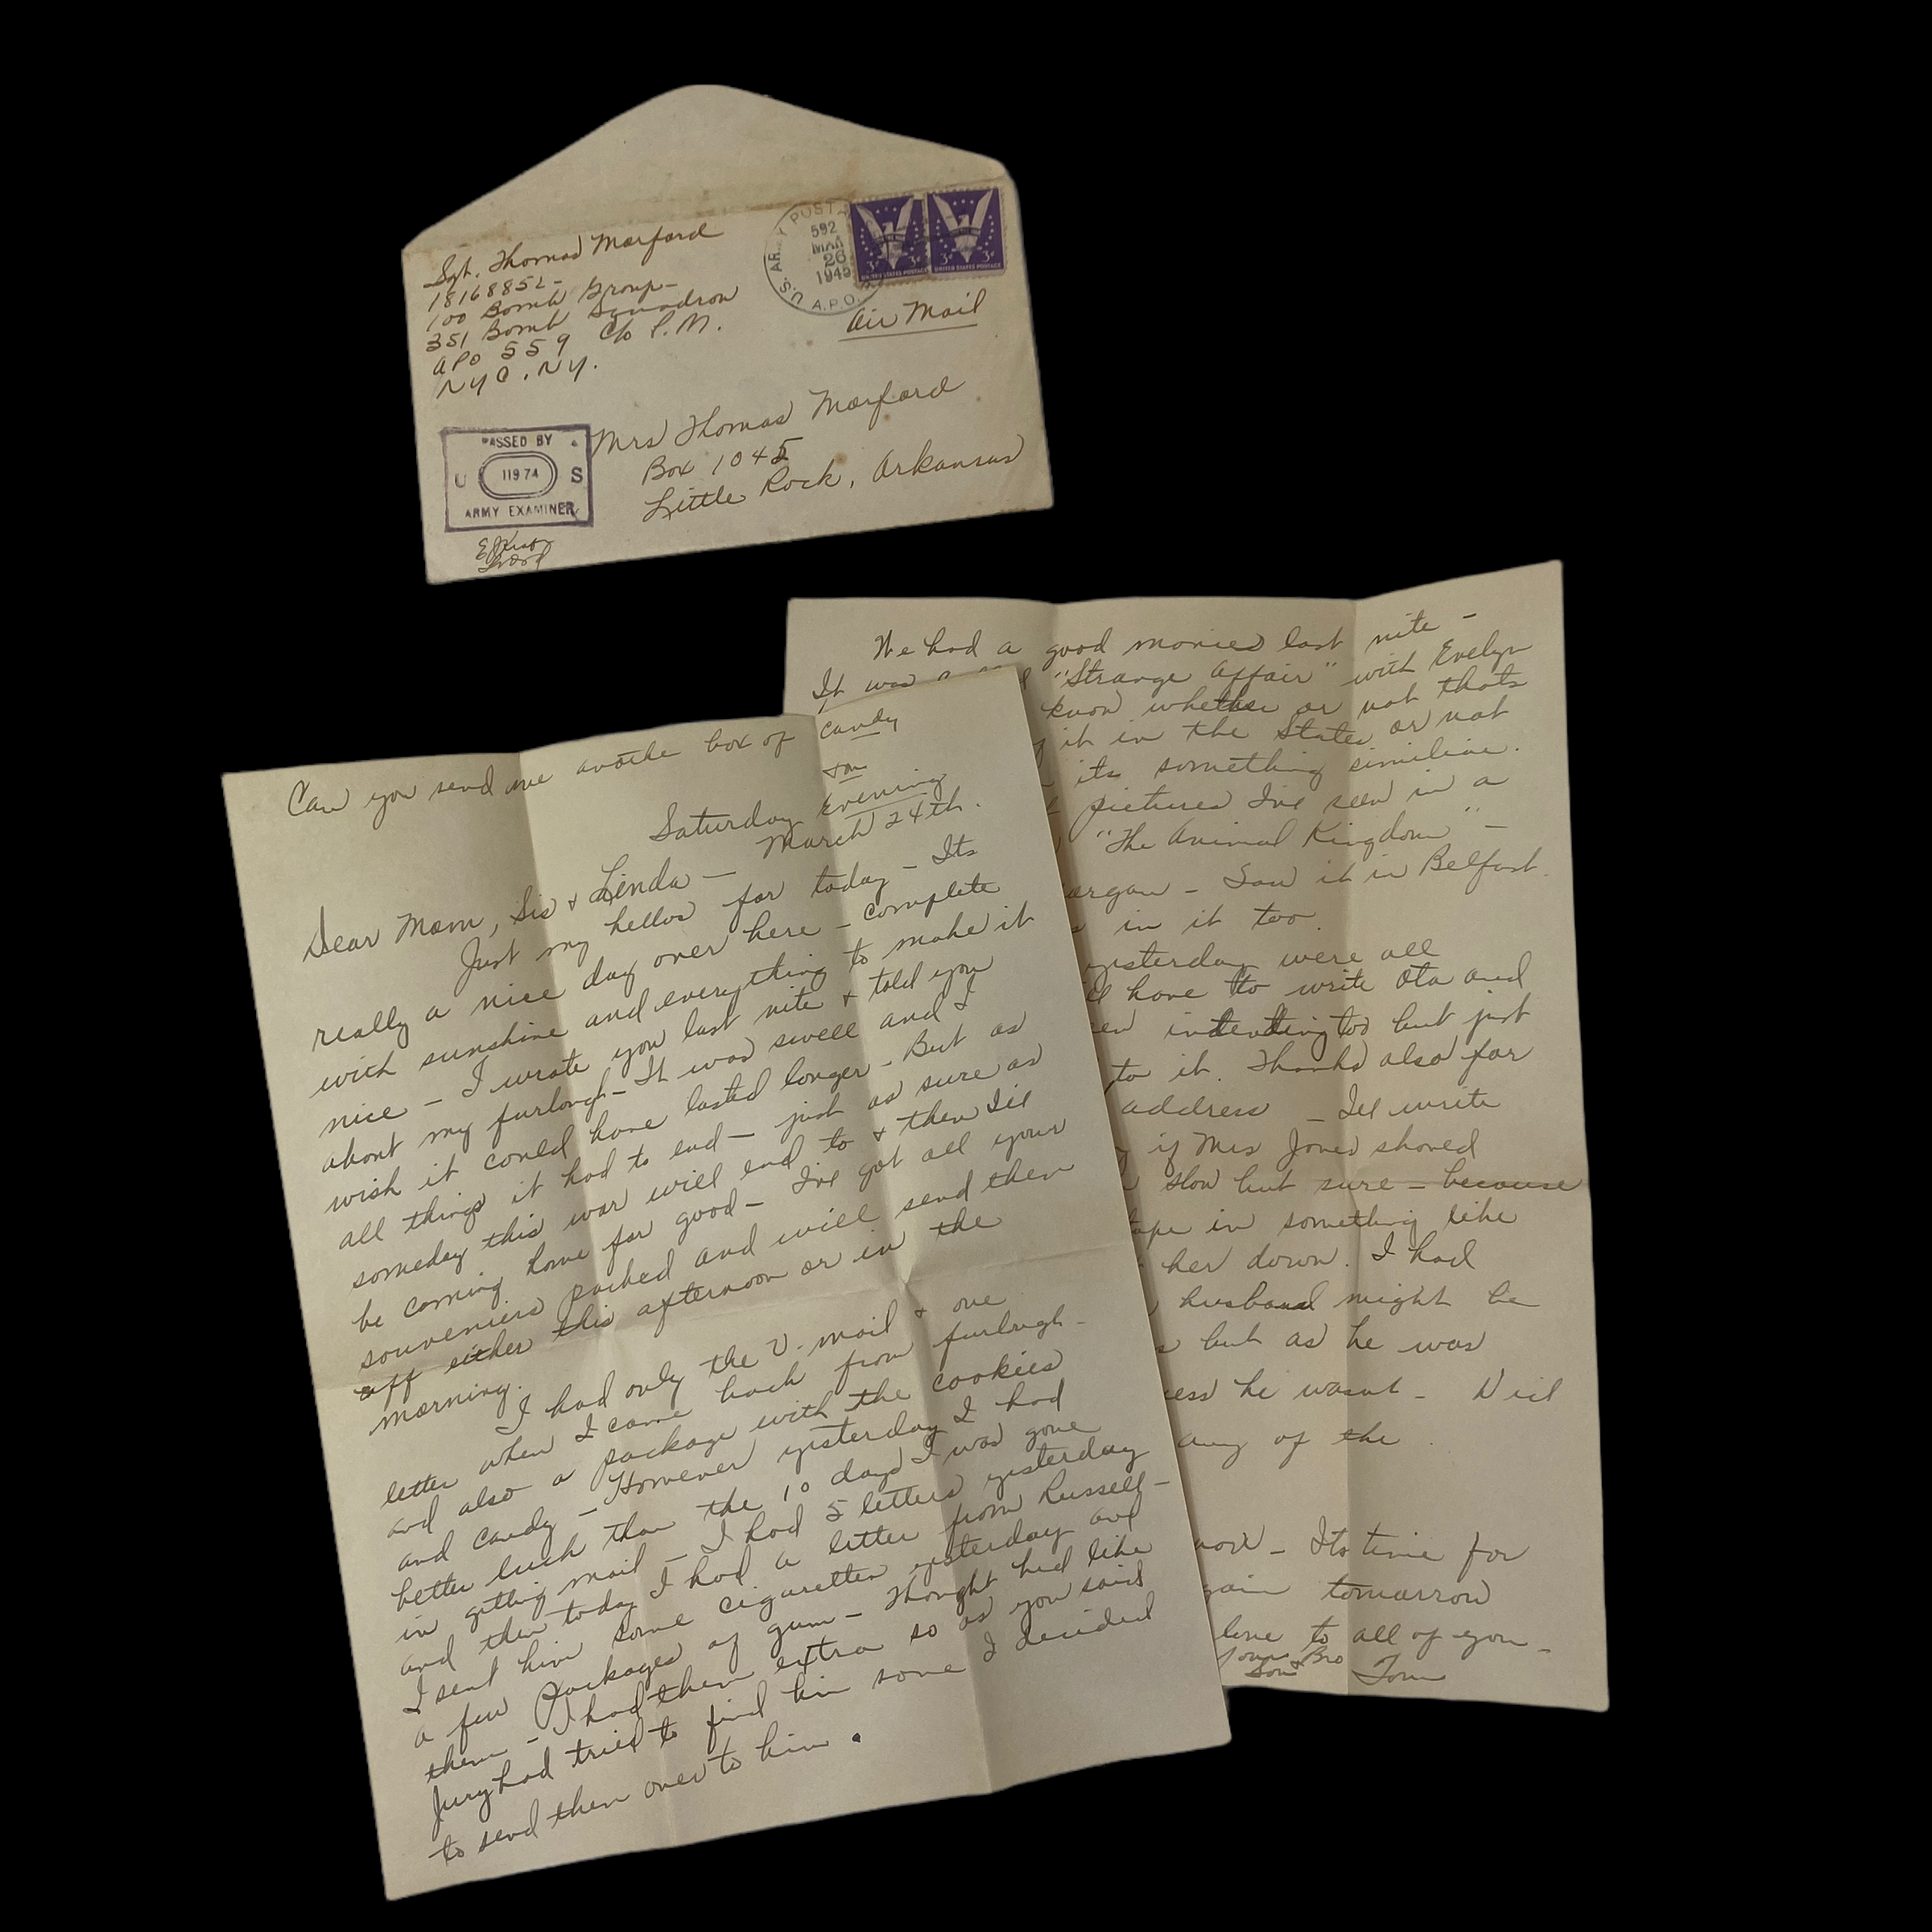 Sgt. Thomas Morford
18168852
100 Bomb Group-
351 Bomb Squadron
APO 559 C/o P.M.
NYC. NY.
U.S. ARMY POST
592
MAR
26
1945
A.P.O.
3¢ 3¢
UNITED STATES POSTAGE
3¢ 3¢
UNITED STATES POSTAGE
Air Mail
Mrs Thomas Morford
Box 1045
Little Rock, Arkansas
PASSED BY
U 11974 S
ARMY EXAMINER
Can you send me anothe box of candy
Tom
Saturday Evening
March 24th.
Dear Mom, Sis & Linda -
Just my hellos for today - Its
really a nice day over here - complete
with sunshine and everything to make it
nice - I wrote you last nite & told you
about my furlough - It was swell and I
wish it could have lasted longer - But as
all things it had to end - just as sure as
someday this war will end to & then Ill
be coming home for good - Ive got all your
souveniers packed and will send them
off either this afternoon or in the
morning.
I had only the V. mail & one
letter when I came back from furlough -
and also a package with the cookies
and candy - However yesterday I had
better luck than the 10 days I was gone
in getting mail - I had 5 letters yesterday
and then today I had a letter from Russell -
I sent him some cigarettes yesterday and
a few packages of gum - Thought hed like
them - I had them extra so as you said
Jury had tried to find him some I decided
to send them over to him.
We had a good movies last nite -
It was "Strange Affair" with Evelyn
know whether or not thats
it in the States or not
its something similiar.
pictures Ive seen in a
"The Animal Kingdom" -
organ - Saw it in Belfast.
in it too.
yesterday were all
have to write Ota and
intending to but just
to it. Thanks also for
address - Ill write
if Mrs Jones shoved
slow but sure - because
in something like
her down. I had
husband might be
but as he was
he wasnt - Will
any of the
now - Its time for
tomorrow
love to all of you -
Your
Son & Bro Tom